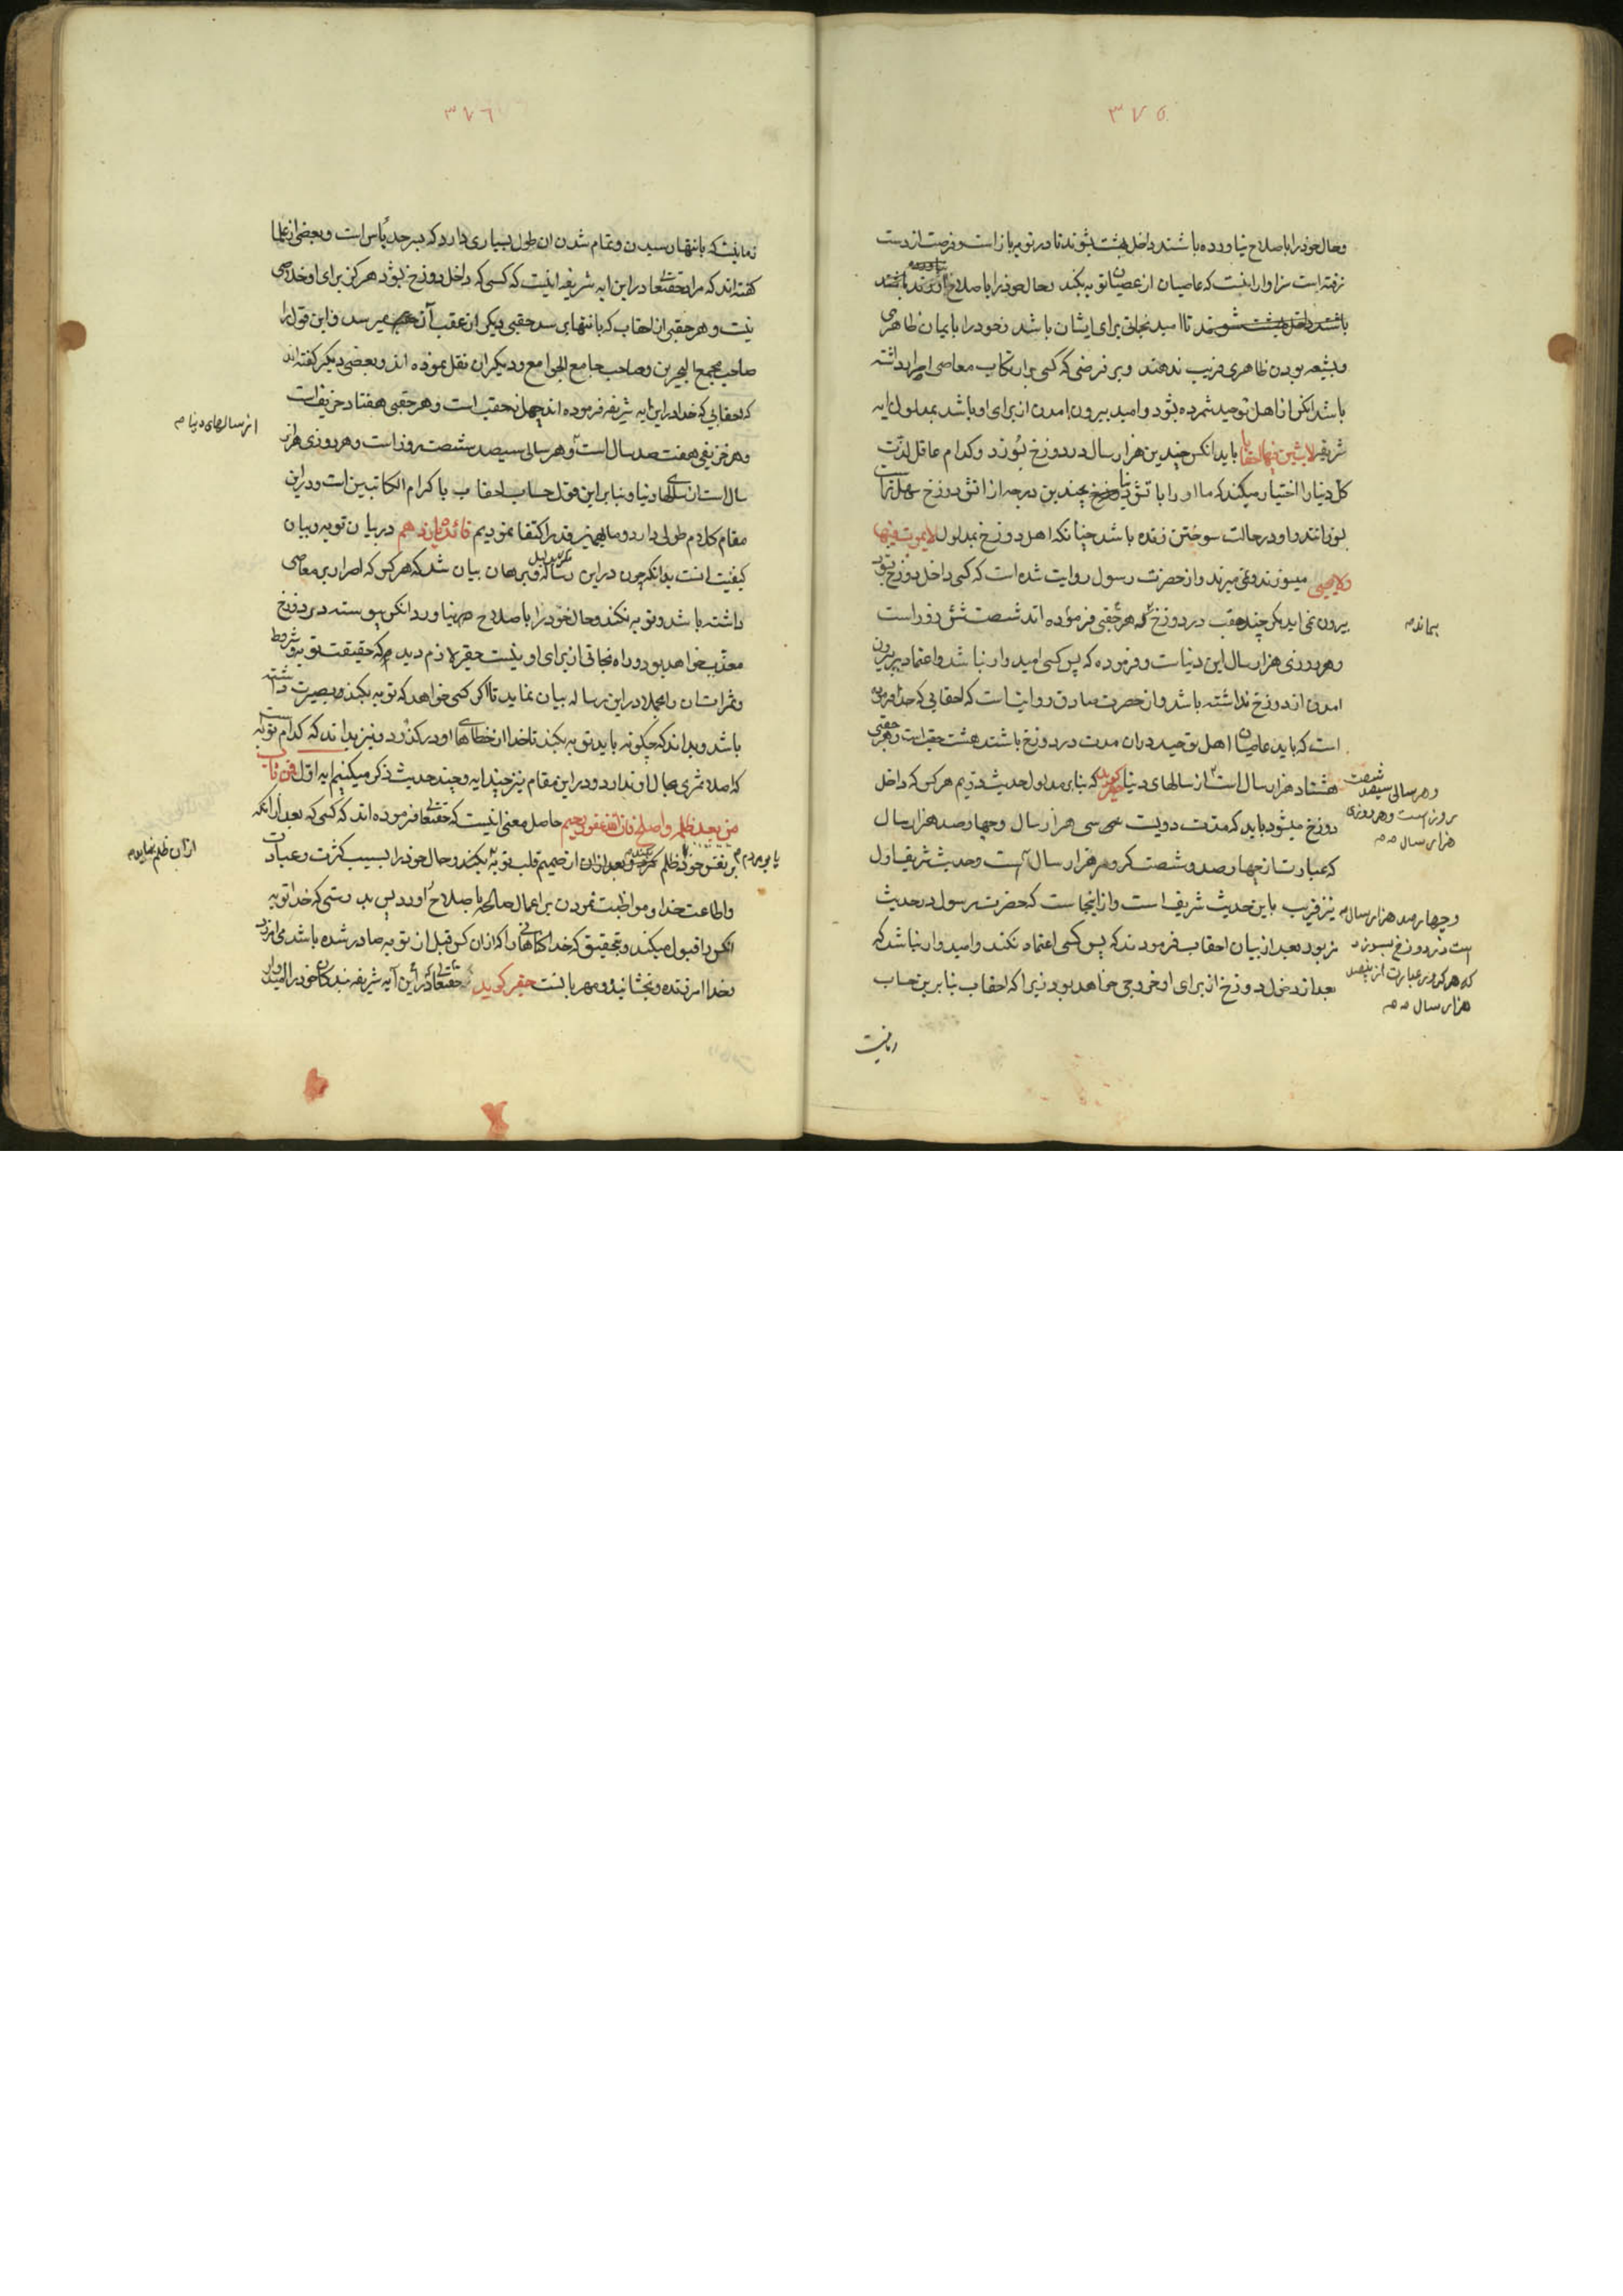 ٣٧٥
وحال خود را باصلاح نیاورده باشند داخل بهشت شوند تا در توبه باز است و فرصت از دست
نرفته است سزاوار اینست که عاصیان از عصیان توبه بکنند و حال خود را باصلاح آورند
تا امید نجاتی برای ایشان باشد و خود را بایمان ظاهری
و بشیعه بودن ظاهری فریب ندهند و بر فرضی که کسی بر ارتکاب معاصی اصرار داشته
باشد انکس از اهل توحید شمرده بشود و امید بیرون امدن از برای او باشد بمدلول ایه
شریفه لابثین فیها احقابا باید انکس چندین هزار سال در دوزخ بسوزد و کدام عاقل لذت
کل دنیا را اختیار میکند که ما او را با تش دنیا که بچندین درجه از اتش دوزخ سهل تر است
بسوزانند و او در حالت سوختن زنده باشد چنانکه اهل دوزخ بمدلول لا یموت فیها
ولا یحیی میسوزند و نمی میرند و از حضرت رسول روایت شده است که کسی داخل دوزخ بشود
بیرون نمی اید مکر چند حقب در دوزخ که هر حقبی فرموده اند شصت
بماند م
و هر روزی هزار سال این دنیاست و فرموده که پس کسی امیدوار نباشد و اعتماد بر بیرون
امدن از دوزخ نداشته باشد و از حضرت صادق روایت است که احقابی که خدا فرموده
است که باید عاصیان اهل توحید در ان مدت در دوزخ باشند هشت حقب است و هر حقبی
هشتاد هزار سال است از سالهای دنیا حقیر کوید که بنابر مدلول حدیث دویم هر کس که داخل
و هر سالی سیصد شصت
روز است و هر روزی
هزار سال
دوزخ میشود باید که مدت دویست سی هزار سال و چهار صد هزار سال
که عبارت از چهار صد و شصت کرور هزار سال است و حدیث شریف اول
و چهار صد هزار سال م
است در دوزخ بسوزد
که هر کرور عبارت از پانصد
هزار سال
نیز قریب باین حدیث شریف است و از اینجاست که حضرت رسول در حدیث
مزبور بعد از بیان احقاب فرمودند که پس کسی اعتماد نکند و امیدوار نباشد که
بعد از دخول دوزخ از برای او خروجی خواهد بود زیرا که احقاب بنابرین حساب
زمانیست
٣٧٦
زمانیست که بانتها رسیدن و تمام شدن ان طول بسیاری دارد که بسرحد یأس است و بعضی از علما
کفته اند که مراد حقتعالی در این ایه شریفه اینست که کسی که داخل دوزخ بشود هرکز برای او خلاصی
نیست و هر حقبی از احقاب که بانتها برسد حقبی دیکر از عقب آن میرسد و این قول را
صاحب مجمع البحرین و صاحب جامع الجوامع و دیکران نقل نموده اند و بعضی دیکر کفته اند
که احقابی که خدا در این ایه شریفه فرموده اند چهل حقب است و هر حقبی هفتاد خریف است
و هر خریفی هفت صد سال است و هر سالی سیصد شصت روز است و هر روزی هزار
از سالهای دنیا م
سال است از سالهای دنیا و بنابر این قول حساب احقاب با کرام الکاتبین است و در این
مقام کلام طولی دارد و ما بهمین قدر اکتفا نمودیم فائده یازدهم در بیان توبه و بیان
کیفیت انست بدانکه چون در این رساله بدلیل و برهان بیان شد که هر کس که اصرار بر معاصی
داشته باشد و توبه نکند و حال خود را باصلاح نیاورد انکس پیوسته در دوزخ
معذب خواهد بود و راه نجاتی از برای او نیست حقیر لازم دید که حقیقت توبه و شروط
و ثمرات ان را مجملا در این رساله بیان نماید تا اکر کسی خواهد که توبه بکند بصیرت داشته
باشد و بداند که چکونه باید توبه بکند تا خدا از خطاهای او درکذرد و نیز بداند که کدام توبه است
که اصلا ثمری بحال او ندارد و در این مقام نیز چند ایه و چند حدیث ذکر میکنیم ایه اول فمن تاب
من بعد ظلمه و اصلح فان الله غفور رحیم حاصل معنی اینست که حقتعالی فرموده اند که کسی که بعد از انکه
یا بر مردم م
بر نفس خود ظلم بعد از ان از صمیم قلب توبه بکند و حال خود را بسبب کثرت و عبادت
از آن ظلم نماید م
و اطاعت خدا و مواظبت نمودن بر اعمال صالحه باصلاح آورد پس بدرستی که خدا توبه
انکس را قبول میکند و بتحقیق که خدا کناهانی را که از ان کس قبل از توبه صادر شده باشد می امرزد
و خدا امرزنده و بخشاینده و مهربانست حقیر کوید که حقتعالی در این آیه شریفه بندکان خود را امیدوار